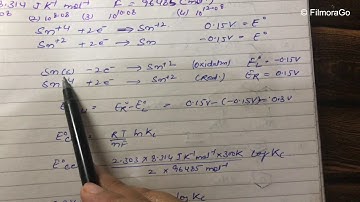 © FilmoraGo
8.314 JK⁻¹ mol⁻¹ F = 96485 C mol⁻¹
(2) 10^10.08 (3) 10^10.08 (4) 10^12.08
Sn⁺⁴ + 2e⁻ → Sn⁺² 0.15V = E°
Sn⁺² + 2e⁻ → Sn -0.15V = E°
Sn(s) - 2e⁻ → Sn⁺² (Oxidation) E°L = -0.15V
+ 2e⁻ → Sn⁺² (Red.) E°R = 0.15V
= E°R - E°L = 0.15V - (-0.15V) = 0.3V
E°cell = RT/nF ln Kc
E°cell = 2.303 × 8.314 JK⁻¹ mol⁻¹ × 300K / 2 × 96485 mol⁻¹ log Kc
log Kc